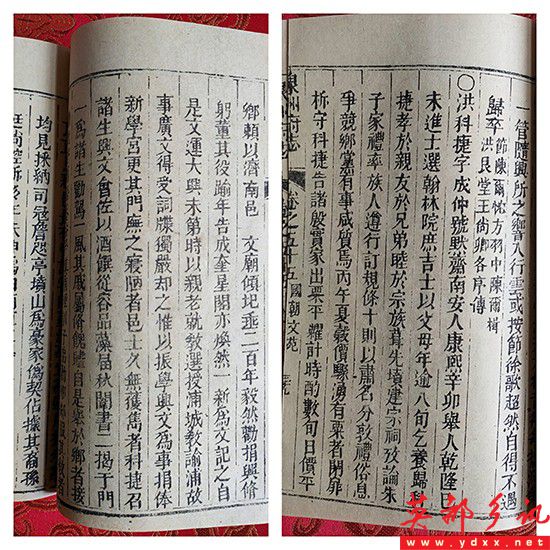 一管隨興所之響入行雲或按節徐歌超然自得不過
歸卒
節陳爾忱方羽中陳爾楫
洪艮堂王尚卿各序傳
○洪科捷字成仲號默齋南安人康熙辛卯舉人乾隆己
未進士選翰林院庶吉士以父母年逾八旬乞養歸科
捷孝於親友於兄弟睦於宗族葺先墳建宗祠攷論朱
子家禮率族人遵行訂規條十則以肅名分敦禮俗息
爭競鄉黨有事咸質焉丙午夏穀價騰湧有粟者閉扉
柝守科捷告諸殷實家出粟平糶計時酌數旬日價平
泉州府志 卷之五十五 國朝文苑
鄉賴以濟南邑 文廟傾圮垂二百年毅然勸捐興脩
躬董其役踰年告成奎星閣亦煥然一新為文記之自
是文運大興未第時以親老就教選授浦城教諭浦故
事廣文得受詞牒獨嚴却之惟以振學興文為事捐俸
新學宮更其門廡之窄陋者邑士久無獲雋者科捷召
諸生與文會佐以酒饌從容品藻秋闈書二揭于門
一為諸生勸駕一風其戚屬脩餽贐自是舉於鄉者接
均見採納司寇詹咫亭壙山為豪家偽契佔據其裔孫
英都乡讯
www.ydxx.net